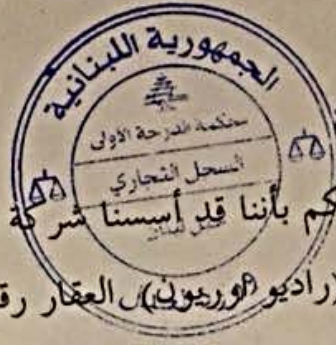 الجمهورية اللبنانية
محكمة الدرجة الأولى
السجل التجاري
جبل لبنان
كم بأننا قد أسسنا شركة
راديو (اوريون) العقار رق